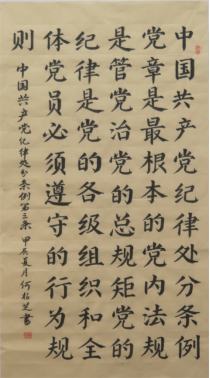 中国共产党纪律处分条例
党章是最根本的党内法规
是管党治党的总规矩党的
纪律是党的各级组织和全
体党员必须遵守的行为规
则
中国共产党纪律处分条例第三条 甲辰夏月何芝书